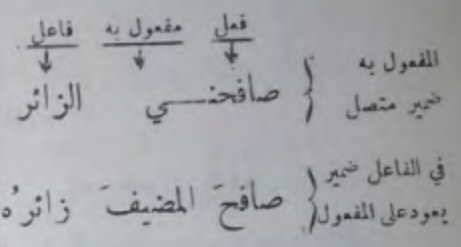 فعل مفعول به فاعل
المفعول به
ضمير متصل
صافحنـــي الزائر
في الفاعل ضمير
يعود على المفعول
صافحَ المضيفَ زائرُه